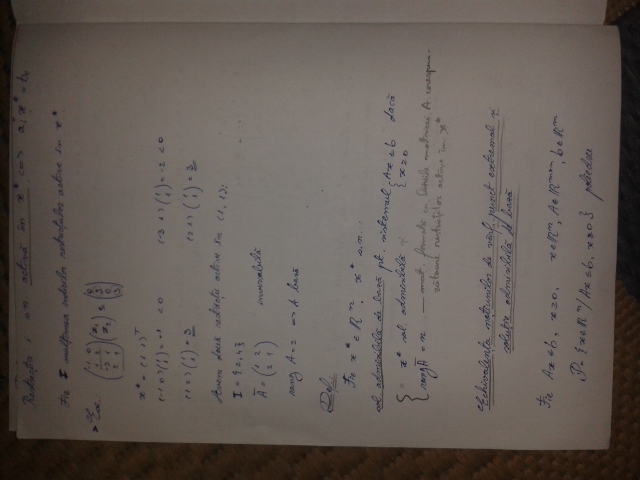 Restricția i s.n. activă în x* <=> aᵢ x* = bᵢ
Fie I mulțimea indicilor restricțiilor active în x*.
Ex. (-1 0; 1 2; -3 1; 2 1) (x₁; x₂) ≤ (0; 3; 0; 3)
x* = (1 1)ᵀ
(-1 0)(1; 1) = -1 < 0 (-3 1)(1; 1) = -2 < 0
(1 2)(1; 1) = 3 (2 1)(1; 1) = 3
Avem două restricții active în (1, 1):
I = {2, 4}
Ā = (1 2; 2 1) inversabilă
rang A = 2 => A bază
Def.:
Fie x* ∈ ℝⁿ, x* s.n.
sol. admisibilă de bază pt. sistemul { Ax ≤ b; x ≥ 0 dacă
{ x* sol. admisibilă și
rang Ā = n — mat. formată cu liniile matricei A corespun-
zătoare restricțiilor active în x*
Echivalența noțiunilor de vârf, punct extremal și
soluție admisibilă de bază
Fie Ax ≤ b, x ≥ 0, x ∈ ℝⁿ, A ∈ ℝᵐˣⁿ, b ∈ ℝᵐ
P = {x ∈ ℝⁿ / Ax ≤ b, x ≥ 0} poliedru